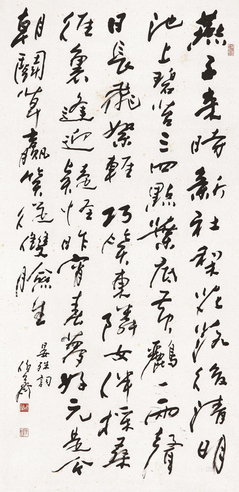 燕子来時新社梨花落後清明
池上碧苔三四點葉底黄鸝一兩聲
日長飛絮輕巧笑東隣女伴採桑
徑裏逢迎疑怪昨宵春夢好元是今
朝鬭草贏笑從雙臉生
晏殊詞